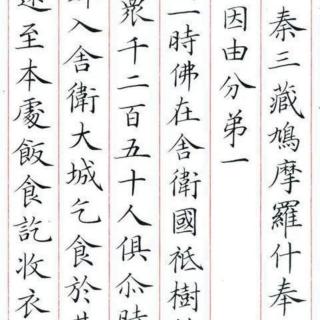 秦三藏鳩摩羅什奉
因由分弟一
一時佛在舍衛國祇樹
眾千二百五十人俱尒時
入舍衛大城乞食於其
至本處飯食訖收衣